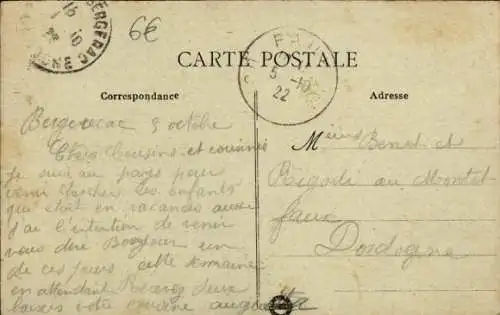 BERGERAC
6€
FAUX
5 -10
22
CARTE POSTALE
Correspondance
Adresse
Bergerac 3 octobre
Chers Cousins et cousines
je suis au pays pour
venir chercher les enfants
qui était en vacances aussi
j'ai l'intention de venir
vous dire Bonjour un
de ces jours cette semaine
en attendant Recevez deux
baisers votre cousine augusta
Benet et
Rigodi au Montet
faux
Dordogne